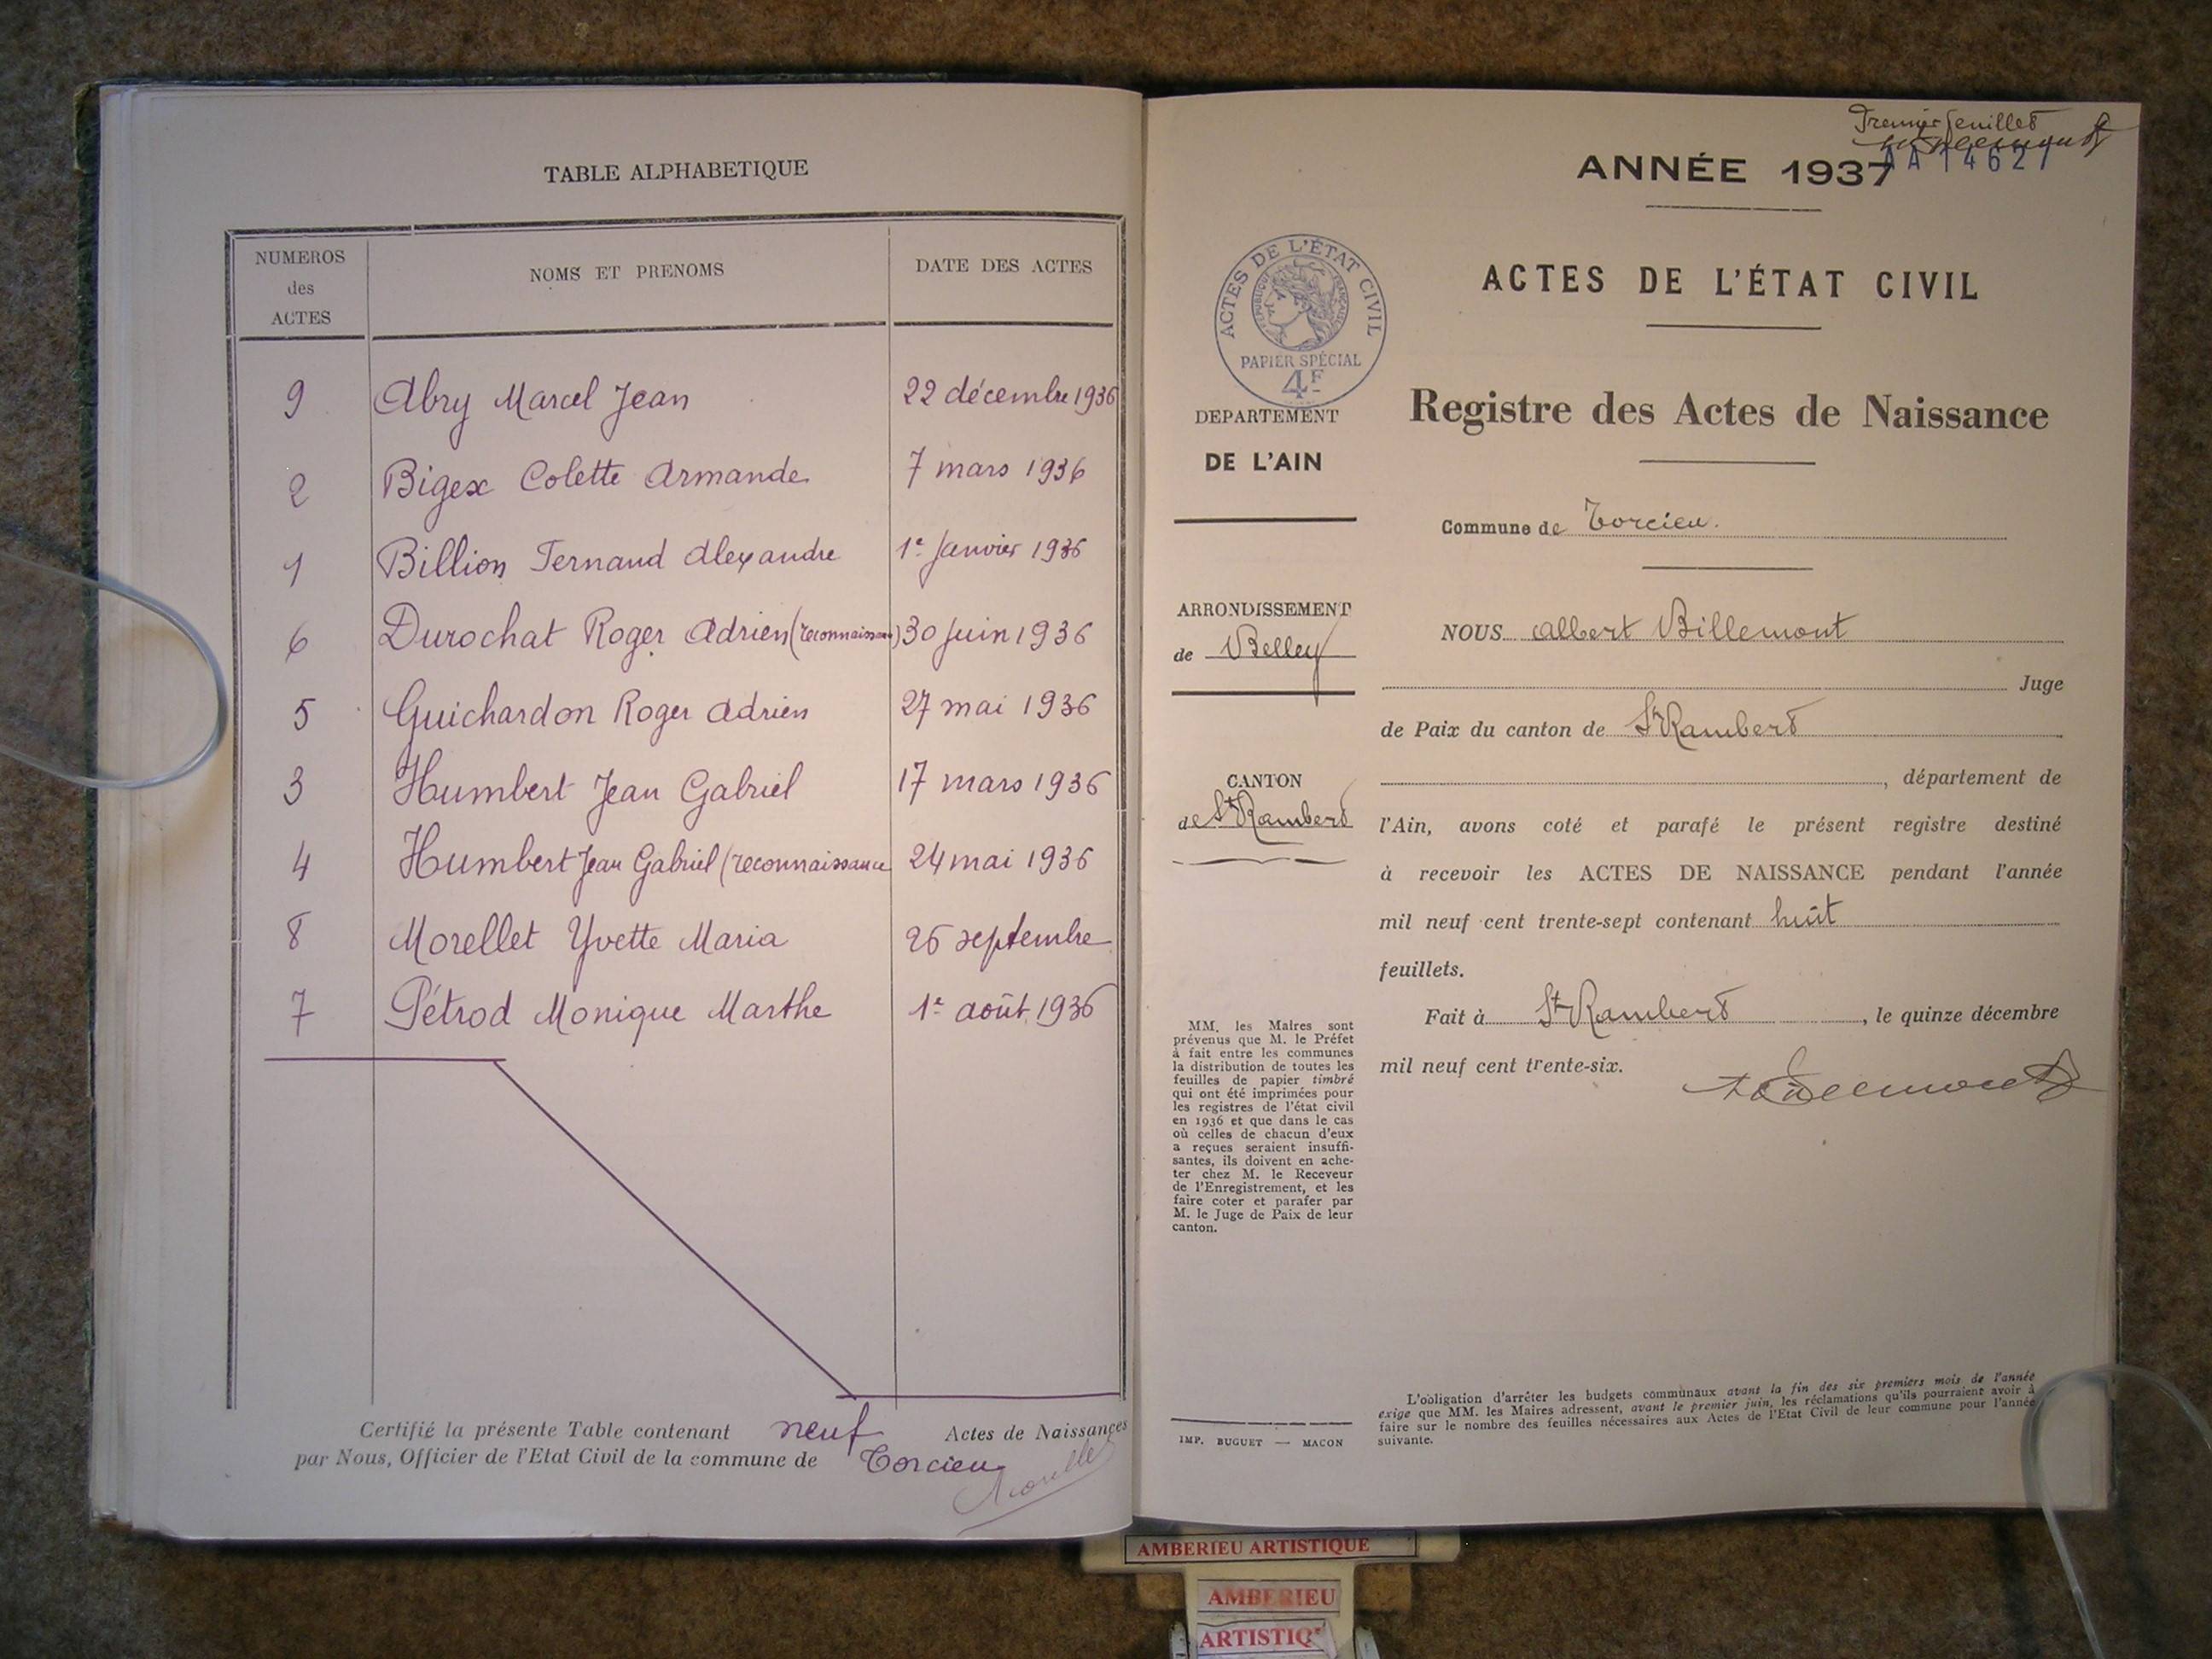 TABLE ALPHABETIQUE
NUMEROS
des
ACTES
NOMS ET PRENOMS
DATE DES ACTES
9 Abry Marcel Jean 22 décembre 1936
2 Bigex Colette Armande 7 mars 1936
1 Billion Fernand Alexandre 1e Janvier 1936
6 Durochat Roger Adrien (reconnaissance) 30 Juin 1936
5 Guichardon Roger Adrien 27 mai 1936
3 Humbert Jean Gabriel 17 mars 1936
4 Humbert Jean Gabriel (reconnaissance 24 mai 1936
8 Morellet Yvette Maria 26 septembre
7 Pétrod Monique Marthe 1e août 1936
Certifié la présente Table contenant neuf Actes de Naissances
par Nous, Officier de l'Etat Civil de la commune de Torcieu
Premier feuillet
AA 14627
ANNÉE 1937
ACTES DE L'ÉTAT CIVIL
ACTES DE L'ÉTAT CIVIL
REPUBLIQUE FRANÇAISE
PAPIER SPÉCIAL
4F
DEPARTEMENT
DE L'AIN
ARRONDISSEMENT
de Belley
CANTON
de St Rambert
MM. les Maires sont
prévenus que M. le Préfet
à fait entre les communes
la distribution de toutes les
feuilles de papier timbré
qui ont été imprimées pour
les registres de l'état civil
en 1936 et que dans le cas
où celles de chacun d'eux
a reçues seraient insuffi-
santes, ils doivent en ache-
ter chez M. le Receveur
de l'Enregistrement, et les
faire coter et parafer par
M. le Juge de Paix de leur
canton.
IMP. BUGUET — MACON
Registre des Actes de Naissance
Commune de Torcieu.
NOUS Albert Billemont
Juge
de Paix du canton de St Rambert
, département de
l'Ain, avons coté et parafé le présent registre destiné
à recevoir les ACTES DE NAISSANCE pendant l'année
mil neuf cent trente-sept contenant huit
feuillets.
Fait à St Rambert, le quinze décembre
mil neuf cent trente-six.
L'obligation d'arrêter les budgets communaux avant la fin des six premiers mois de l'année
exige que MM. les Maires adressent, avant le premier juin, les réclamations qu'ils pourraient avoir à
faire sur le nombre des feuilles nécessaires aux Actes de l'Etat Civil de leur commune pour l'année
suivante.
AMBERIEU ARTISTIQUE
AMBERIEU
ARTISTIQ